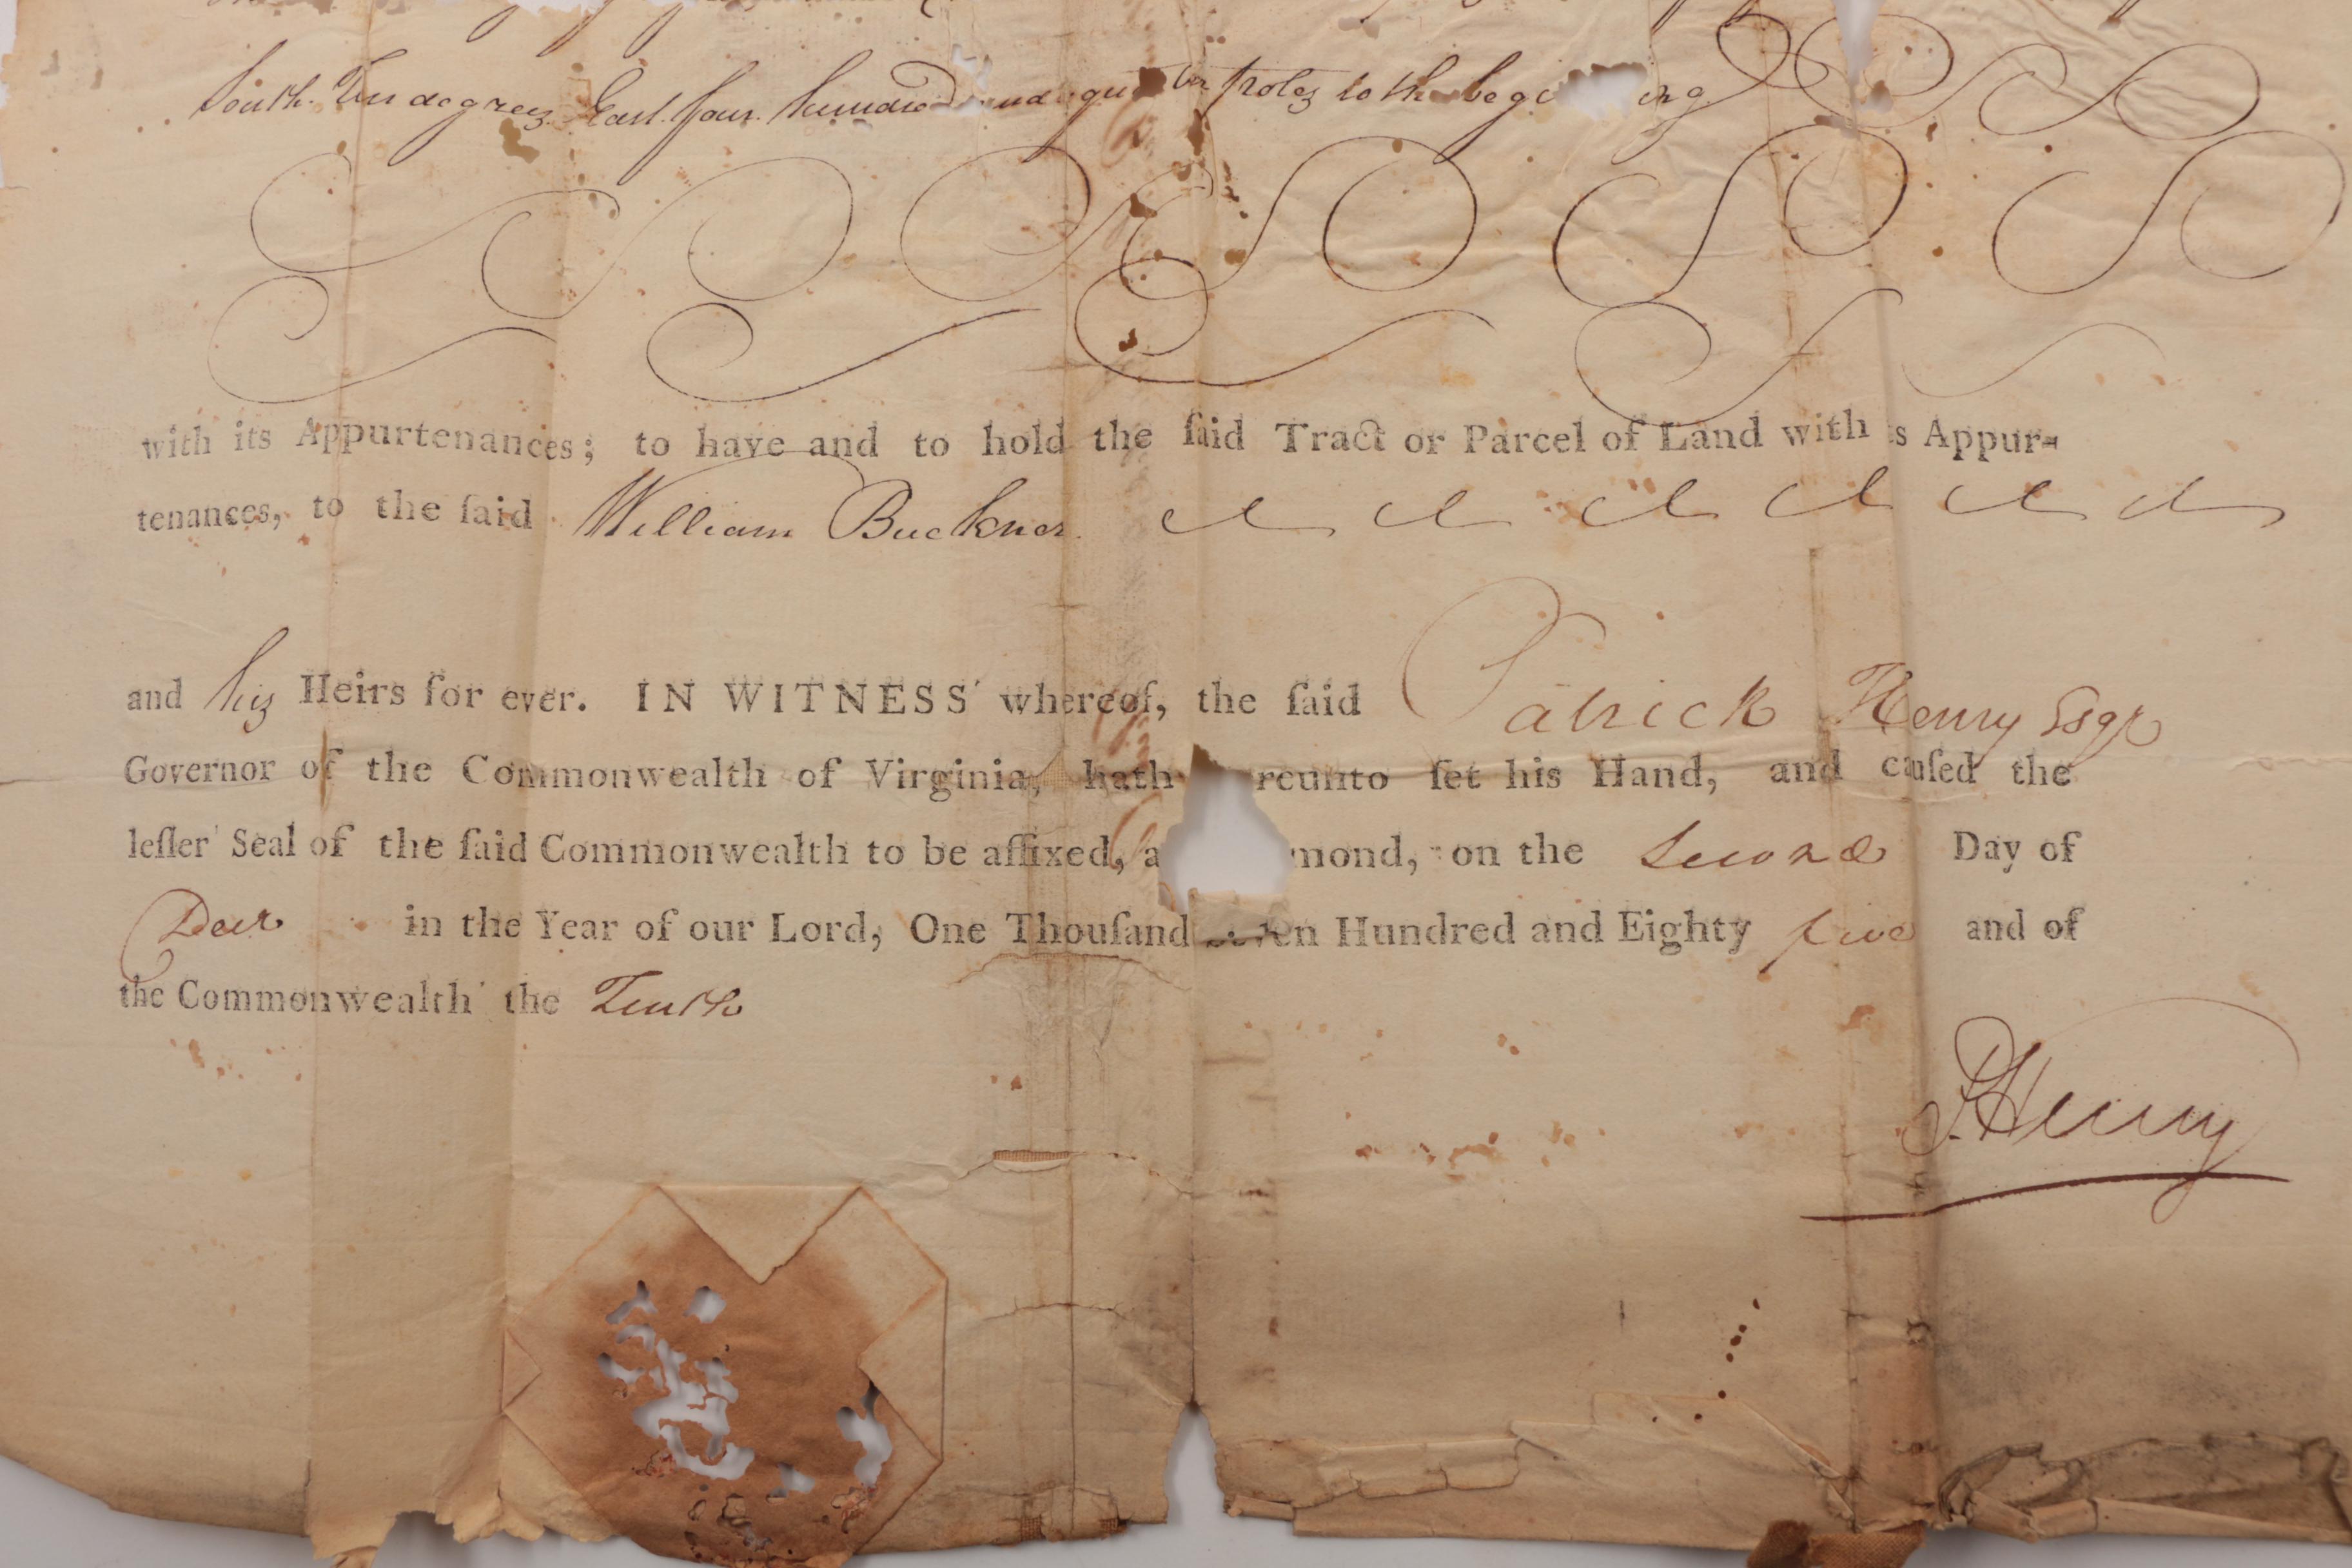 South Ten degrees East four hundred and eight poles to the begi ing
with its Appurtenances; to have and to hold the ſaid Tract or Parcel of Land with s Appur-
tenances, to the ſaid William Buckner
and his Heirs for ever. IN WITNESS whereof, the ſaid Patrick Henry Esqr
Governor of the Commonwealth of Virginia, hath reunto ſet his Hand, and cauſed the
leſſer Seal of the ſaid Commonwealth to be affixed, a mond, on the Second Day of
Decr in the Year of our Lord, One Thouſand Seven Hundred and Eighty five and of
the Commonwealth the Tenth
P. Henry